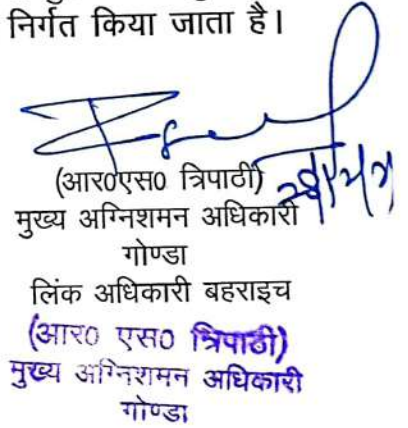 निर्गत किया जाता है।
(आर०एस० त्रिपाठी)
मुख्य अग्निशमन अधिकारी
गोण्डा
लिंक अधिकारी बहराइच
(आर० एस० त्रिपाठी)
मुख्य अग्निशमन अधिकारी
गोण्डा